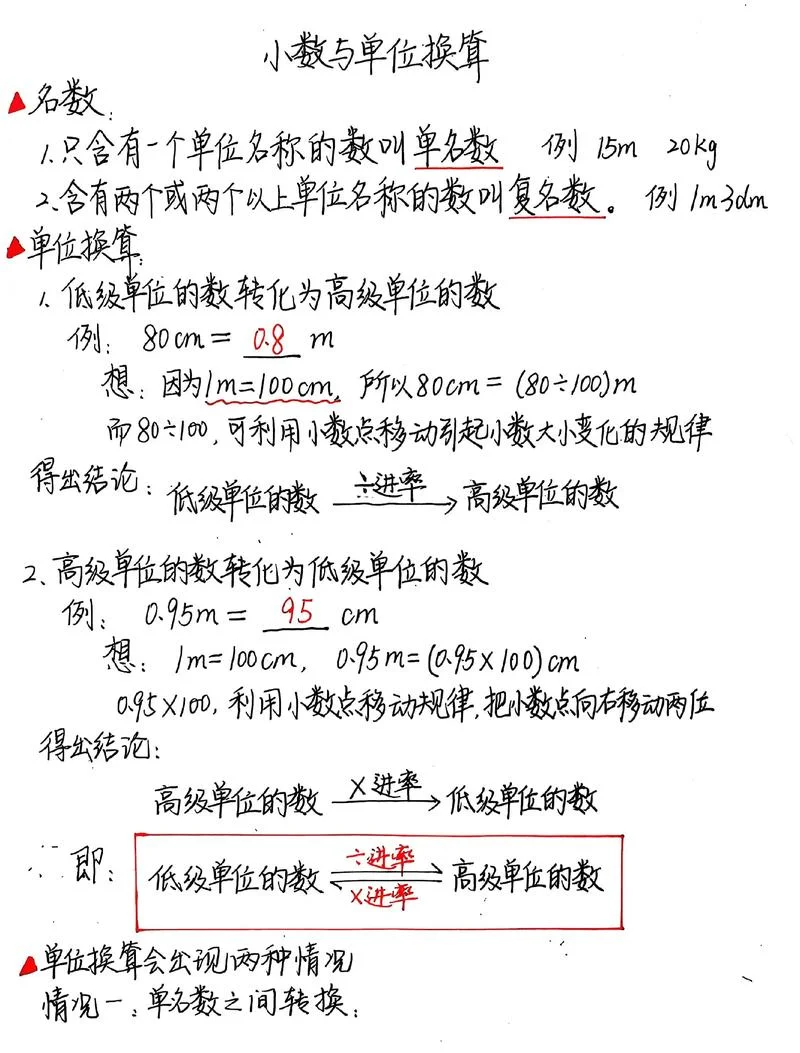 小数与单位换算
▲名数：
1.只含有一个单位名称的数叫单名数 例 15m 20kg
2.含有两个或两个以上单位名称的数叫复名数。 例 1m3dm
▲单位换算：
1. 低级单位的数转化为高级单位的数
例： 80cm = 0.8 m
想：因为1m=100cm, 所以80cm = (80÷100)m
而80÷100,可利用小数点移动引起小数大小变化的规律
得出结论：低级单位的数 ÷进率 → 高级单位的数
2、高级单位的数转化为低级单位的数
例： 0.95m = 95 cm
想： 1m=100cm, 0.95m=(0.95×100)cm
0.95×100,利用小数点移动规律,把小数点向右移动两位
得出结论：
高级单位的数 ×进率 → 低级单位的数
即： 低级单位的数 ÷进率 ⇌ ×进率 高级单位的数
▲单位换算会出现两种情况
情况一：单名数之间转换：